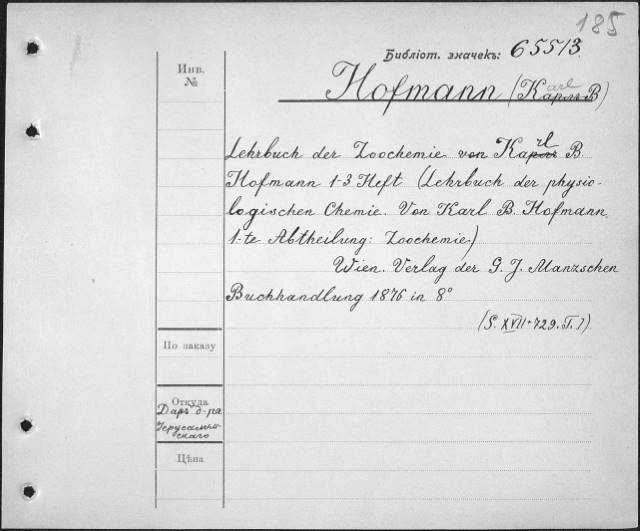 185
Библіот. значекъ: 65513.
Инв.
№
Hofmann (Karl B)
Lehrbuch der Zoochemie von Karl B.
Hofmann 1-3 Heft (Lehrbuch der physio-
logischen Chemie. Von Karl B. Hofmann.
1-te Abtheilung: Zoochemie)
Wien. Verlag der G. J. Manzschen
Buchhandlung 1876 in 8°
(S. XVII+729. T. I)
По заказу
Откуда
Даръ д-ра
Іерусалим-
скаго
Цѣна